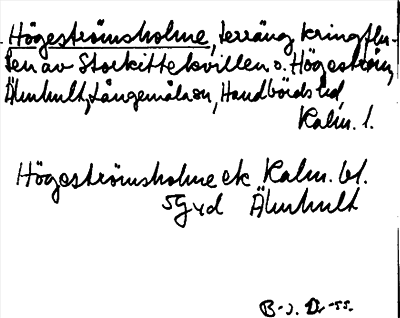 Högeströmsholme, terräng kringflu-
ten av Storkittekvillen o. Högeström,
Älmhult, Långemåla sn, Handbörds hd,
Kalm. l.
Högeströmsholme ek Kalm. bl.
5G vd Älmhult